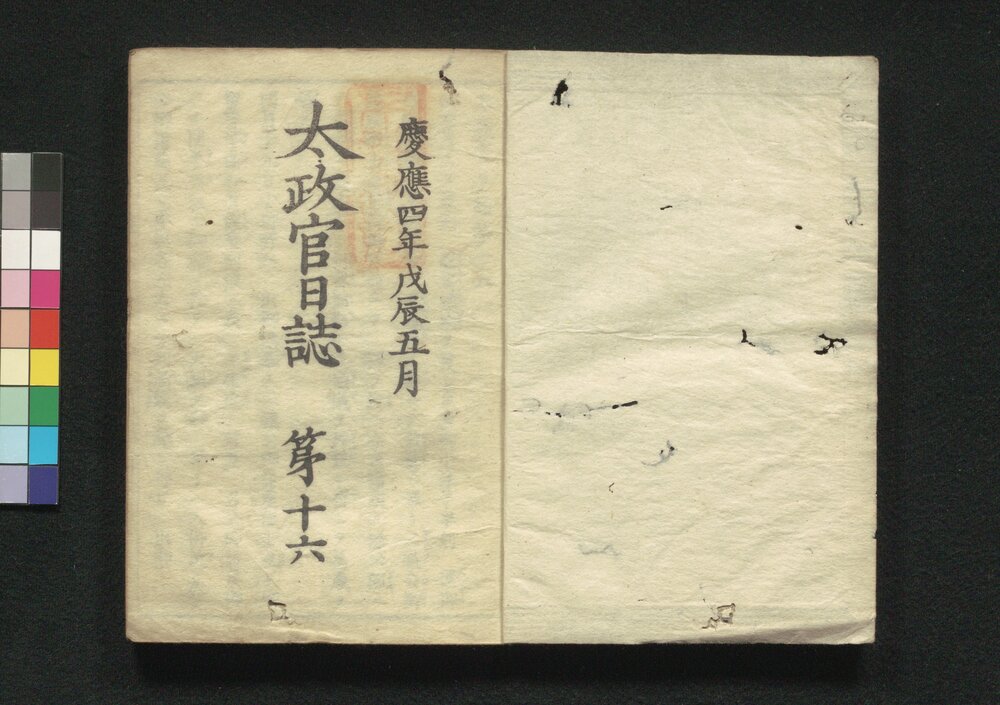 慶應四年戊辰五月
太政官日誌　第十六